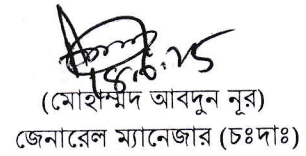 18.6.25
(মোহাম্মদ আবদুন নূর)
জেনারেল ম্যানেজার (চঃদাঃ)